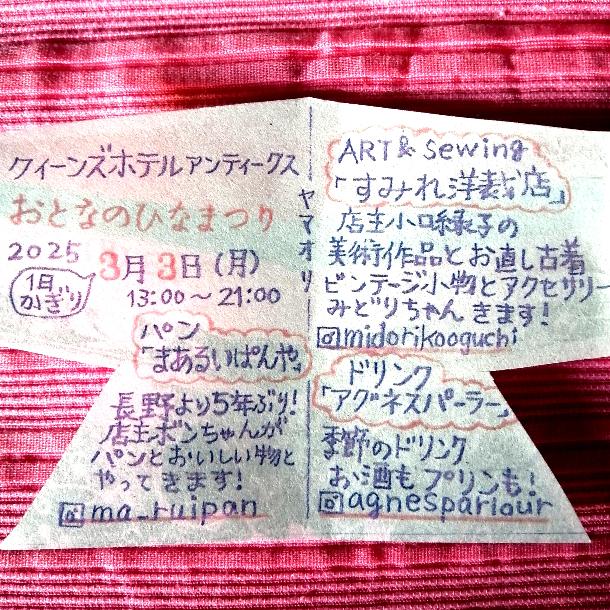 クィーンズホテルアンティークス
おとなのひなまつり
2025
3月3日(月)
1日
かぎり
13:00〜21:00
パン
「まあるいぱんや」
長野より5年ぶり!
店主ボンちゃんが
パンとおいしい物と
やってきます!
@ma_ruipan
ヤマオリ
ART & Sewing
「すみれ洋裁店」
店主小口緑子の
美術作品とお直し古着
ビンテージ小物とアクセサリー
みどりちゃんきます!
@midorikooguchi
ドリンク
「アグネスパーラー」
季野のドリンク
お酒もプリンも!
@agnesparlour